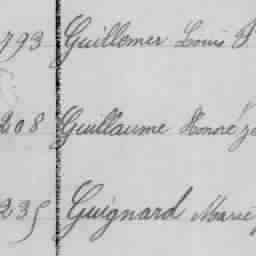 793 Guillemer Louis
208 Guillaume Honoré
235 Guignard Marie